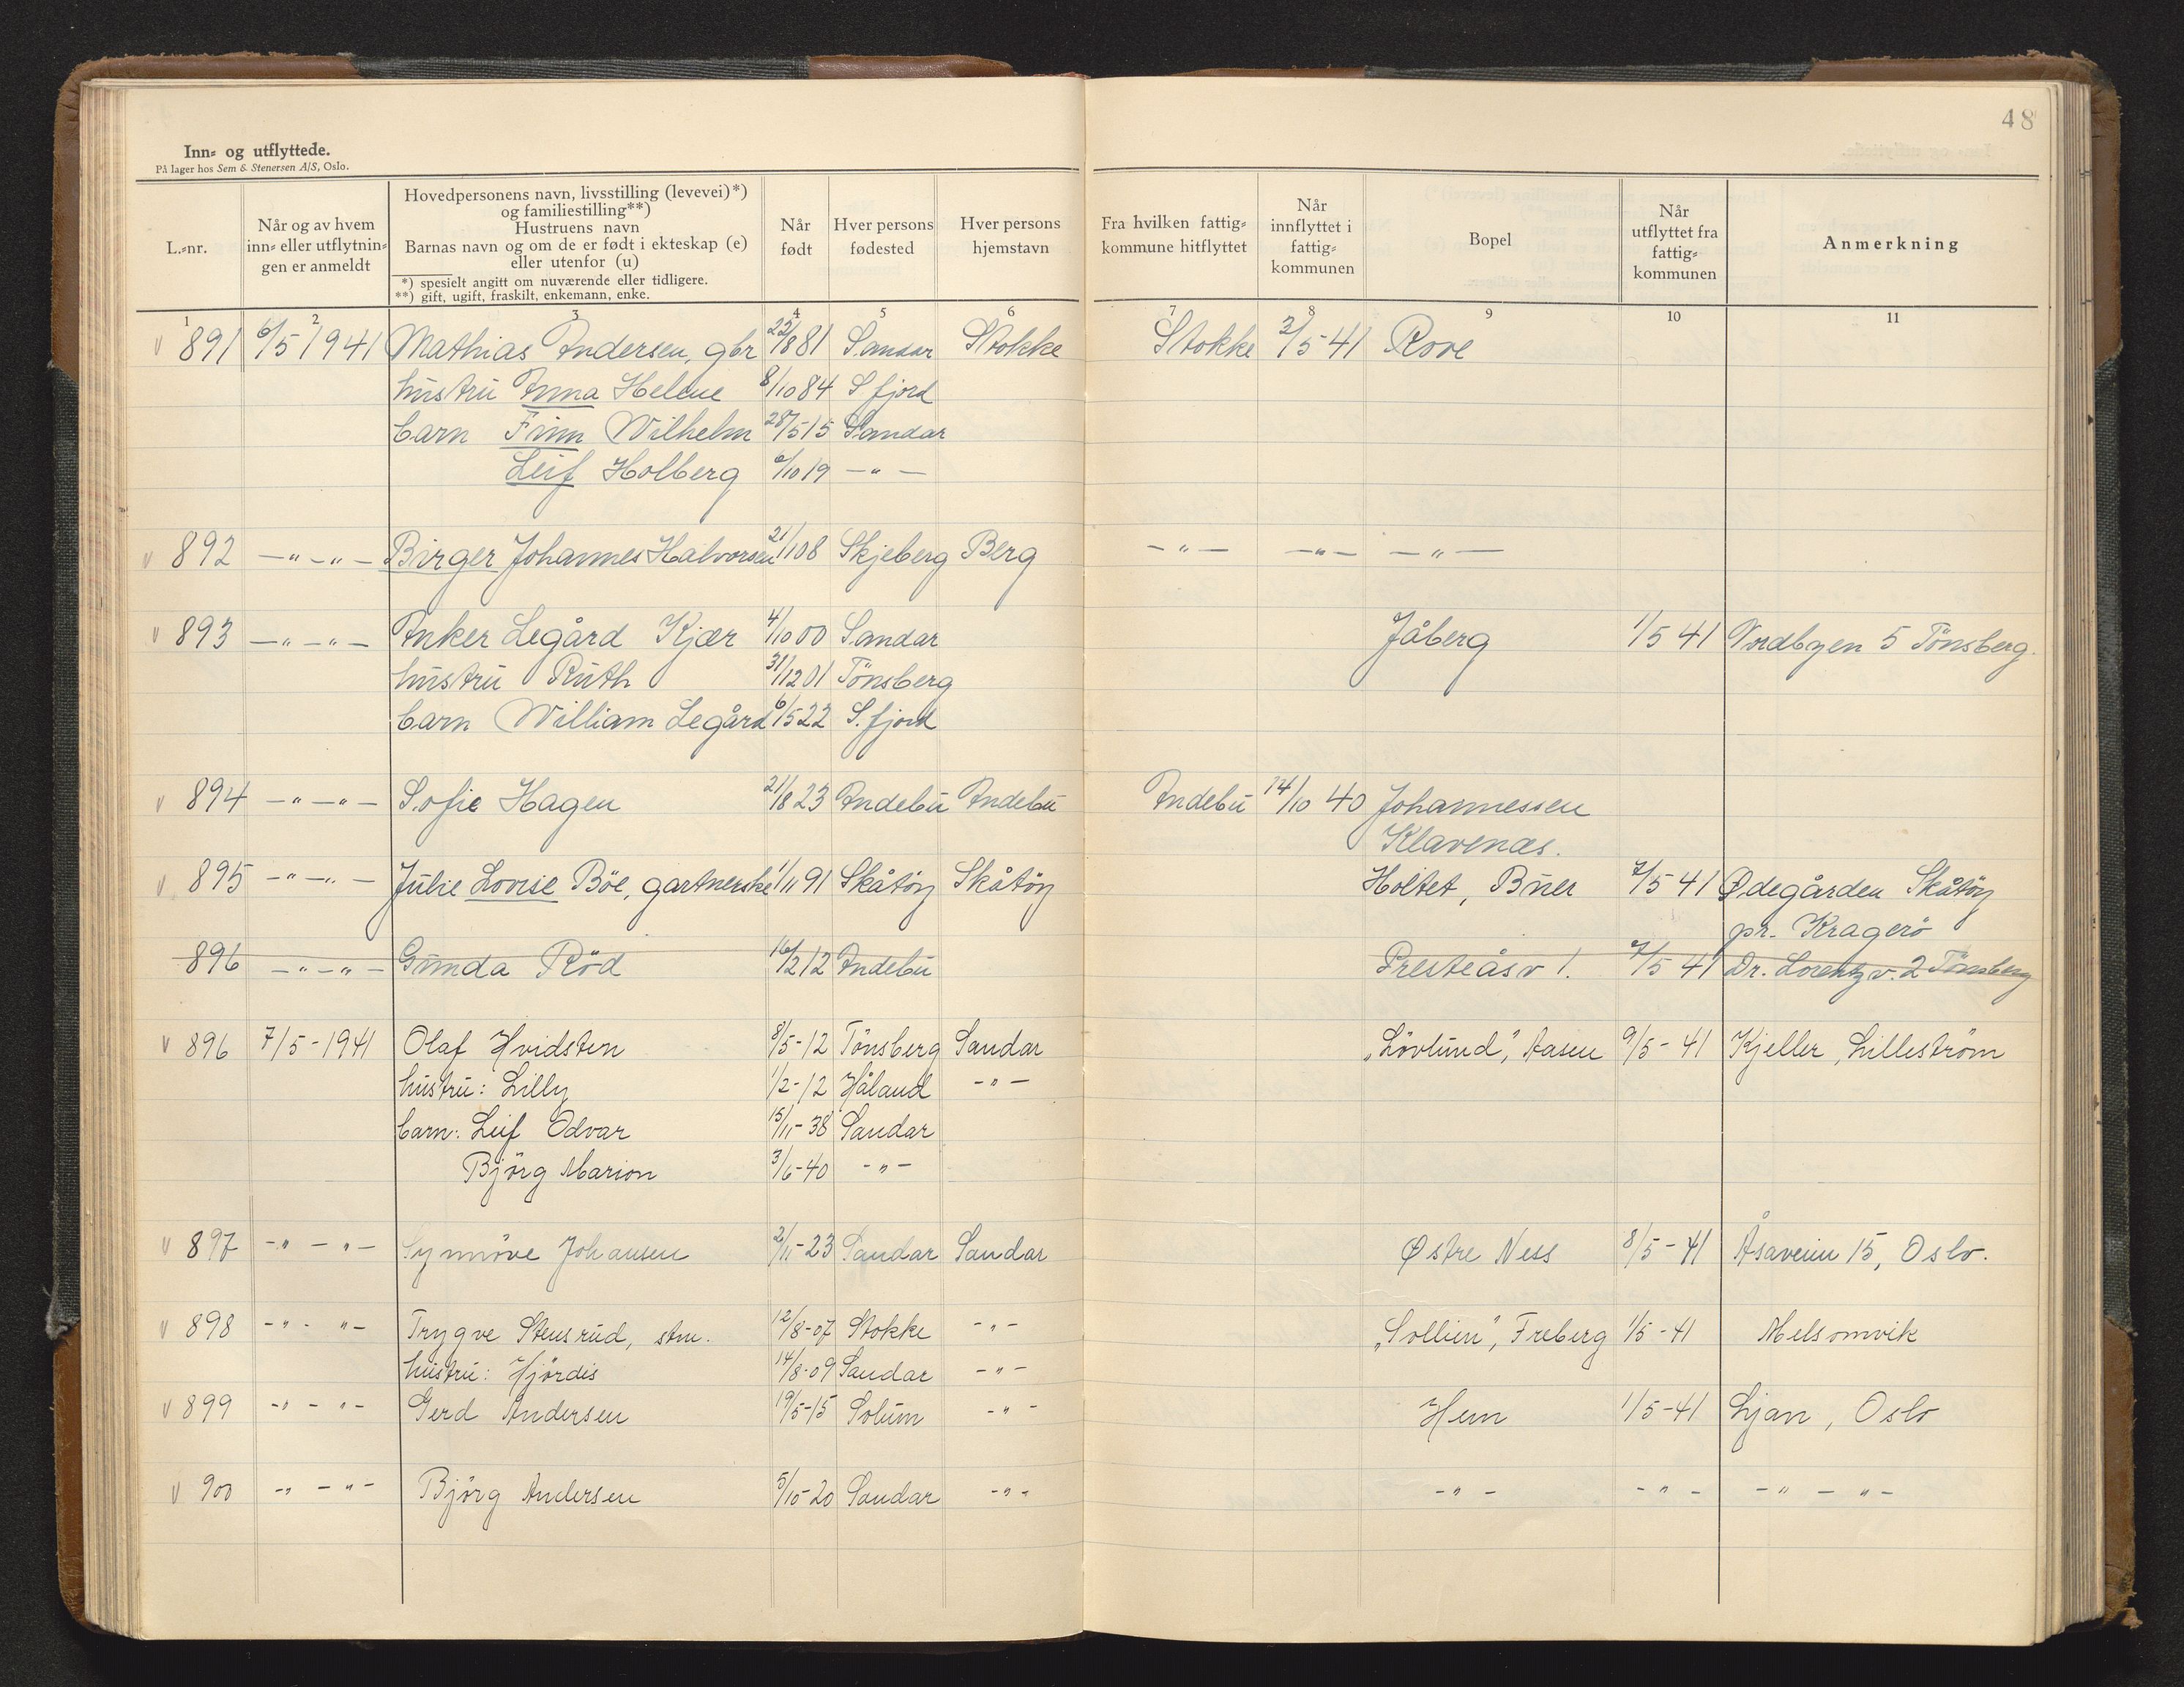 48
Inn- og utflyttede.
På lager hos Sem & Stenersen A/S, Oslo.
L.-nr.
Når og av hvem inn- eller utflytnin-gen er anmeldt
Hovedpersonens navn, livsstilling (levevei)*) og familiestilling**)
Hustruens navn
Barnas navn og om de er født i ekteskap (e) eller utenfor (u)
*) spesielt angitt om nuværende eller tidligere.
**) gift, ugift, fraskilt, enkemann, enke.
Når født
Hver persons fødested
Hver persons hjemstavn
Fra hvilken fattig-kommune hitflyttet
Når innflyttet i fattig-kommunen
Bopel
Når utflyttet fra fattig-kommunen
Anmerkning
1 2 3 4 5 6 7 8 9 10 11
v 891 6/5 1941 Mathias Andersen, gbr 22/8 81 Sandar Stokke Stokke 3/5-41 Rove
hustru Anna Helene 8/10 84 S fjord
barn Finn Wilhelm 28/5 15 Sandar
Leif Holberg 6/10 19 — " —
v 892 — " — " — Birger Johannes Halvorsen 21/1 08 Skjeberg Berg — " — — " — — " —
v 893 — " — " — Anker Legård Kjær 4/10 00 Sandar Jåberg 1/5 41 Nordbyen 5 Tönsberg.
hustru Ruth 31/12 01 Tönsberg
barn William Legård 6/5 22 S. fjord
v 894 — " — " — Sofie Hagen 21/8 23 Andebu Andebu Andebu 14/10 40 Johannessen
Klavenæs.
v 895 — " — " — Julie Lovise Böe, gartnerske 1/11 91 Skåtöy Skåtöy Holtet, Buer 7/5 41 Ødegården Skåtöy
pr. Kragerö
896 — " — " — Gunda Röd 16/2 12 Andebu Presteåsv 1. 7/5 41 Dr. Lorentz v. 2 Tönsberg
v 896 7/5-1941 Olaf Hvidsten 8/5-12 Tönsberg Sandar "Lövlund", Aasen 9/5-41 Kjeller, Lilleström
hustru: Lilly 1/2-12 Håland - " -
barn: Leif Odvar 15/11-38 Sandar
Björg Marion 3/6-40 - " -
v 897 - " - " - Synnöve Johansen 2/11-23 Sandar Sandar Østre Ness 8/5-41 Åsaveien 15, Oslo.
v 898 - " - " - Trygve Stensrud, stm. 12/8-07 Stokke - " - "Sollien", Freberg 1/5-41 Melsomvik
hustru: Hjördis 14/8-09 Sandar - " -
v 899 - " - " - Gerd Andersen 19/5-15 Solum - " - Hem 1/5-41 Ljan, Oslo
v 900 - " - " - Björg Andersen 5/10-20 Sandar - " - - " - - " - - " - " -